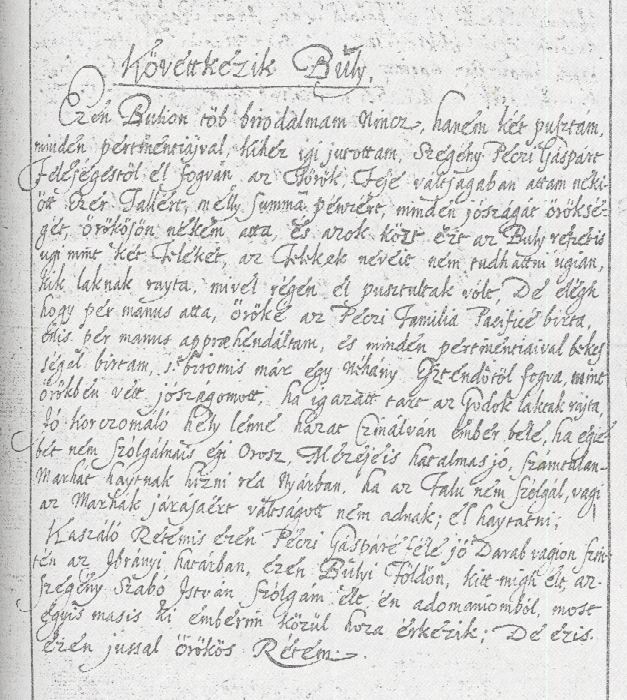 Kóvettkézik Buly.
Ezén Bulion tőb birodalmam Nincz, haném két pusztám,
minden pértinéntiáival, kihéz igi jutottam, Szegény Péczi Gáspárt
Feléségéstől él fogván az Tőrők, Fejé váltságában attam néki
őtt Ezér Tallért, mélly summa pénzért, minden jószágát őrőksé-
gét, őrőkősőn nékém atta, és azok kőzt ézt az Buly részétis
ugi mint két Téléket, az Télekek névéit ném tudhattni ugian,
kik laknak rayta, mivél régén él pusztultak vólt, Dé élégh
hogy pér manus atta, őrőké az Péczi Familia Pacificé birta,
énis pér manus appraehéndáltam, és mindén pértinéntiaival békes
ségél birtam, s biromis már égy Néhány Esztendőtől fogva, mint
őrőkbén vétt jószágomott, ha igazátt tart az Sidok laktak rayta,
Jó Korczomáló hély lénné házat Czinálván émbér bélé, ha égié
bét ném szólgálnais égi Orosz, Mézéjéis hatalmas jó, számtalan
Marhát haytnak hizni réá Nyárban, ha az Falu ném szólgál, vagi
az Marhák járásáért váltságott ném adnak; él haytatni;
Kaszáló Rétémis ézén Péczi Gáspáré félé jó Darab vagion szin-
tén az Ibrányi határban, ézén Bulyi Főldőn, kitt migh élt, az
szégény Szabó Istvan szólgám élt én adomaniomból, most
égyis masis ki émbérim kőzűl hozá érkézik; Dé ézis
ézén jussal őrőkős Rétém.